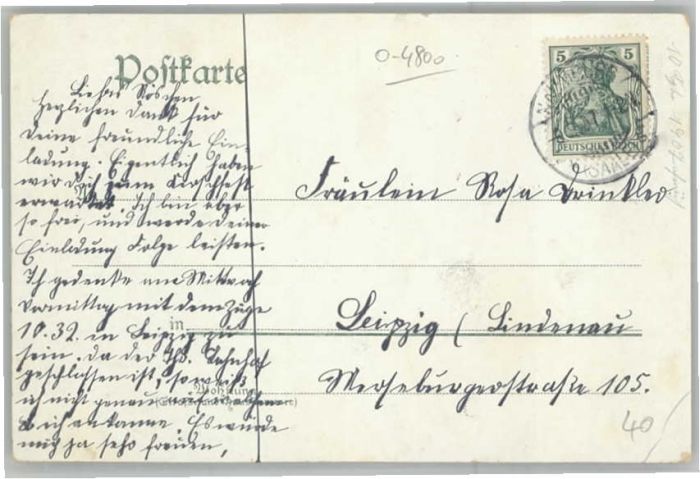 Postkarte
0-4800
5 5
DEUTSCHES REICH
Liebes Röschen
Herzlichen Dank für
Deine freundliche Ein-
ladung. Eigentlich haben
wir Dich zum Kirschfest
erwartet. Ich bin aber
so frei, und werde Deiner
Einladung Folge leisten.
Ich gedenke am Mittwoch
Vormittag mit dem Zuge
10.32. in Leipzig zu
sein. Da der Thr. Bahnhof
geschlossen ist, so weiß
ich nicht genau
wo ich ankomme. Es würde
mich ja sehr freuen,
Fräulein Rosa
in
Leipzig (Lindenau
Wohnung
Merseburgerstraße 105.
40